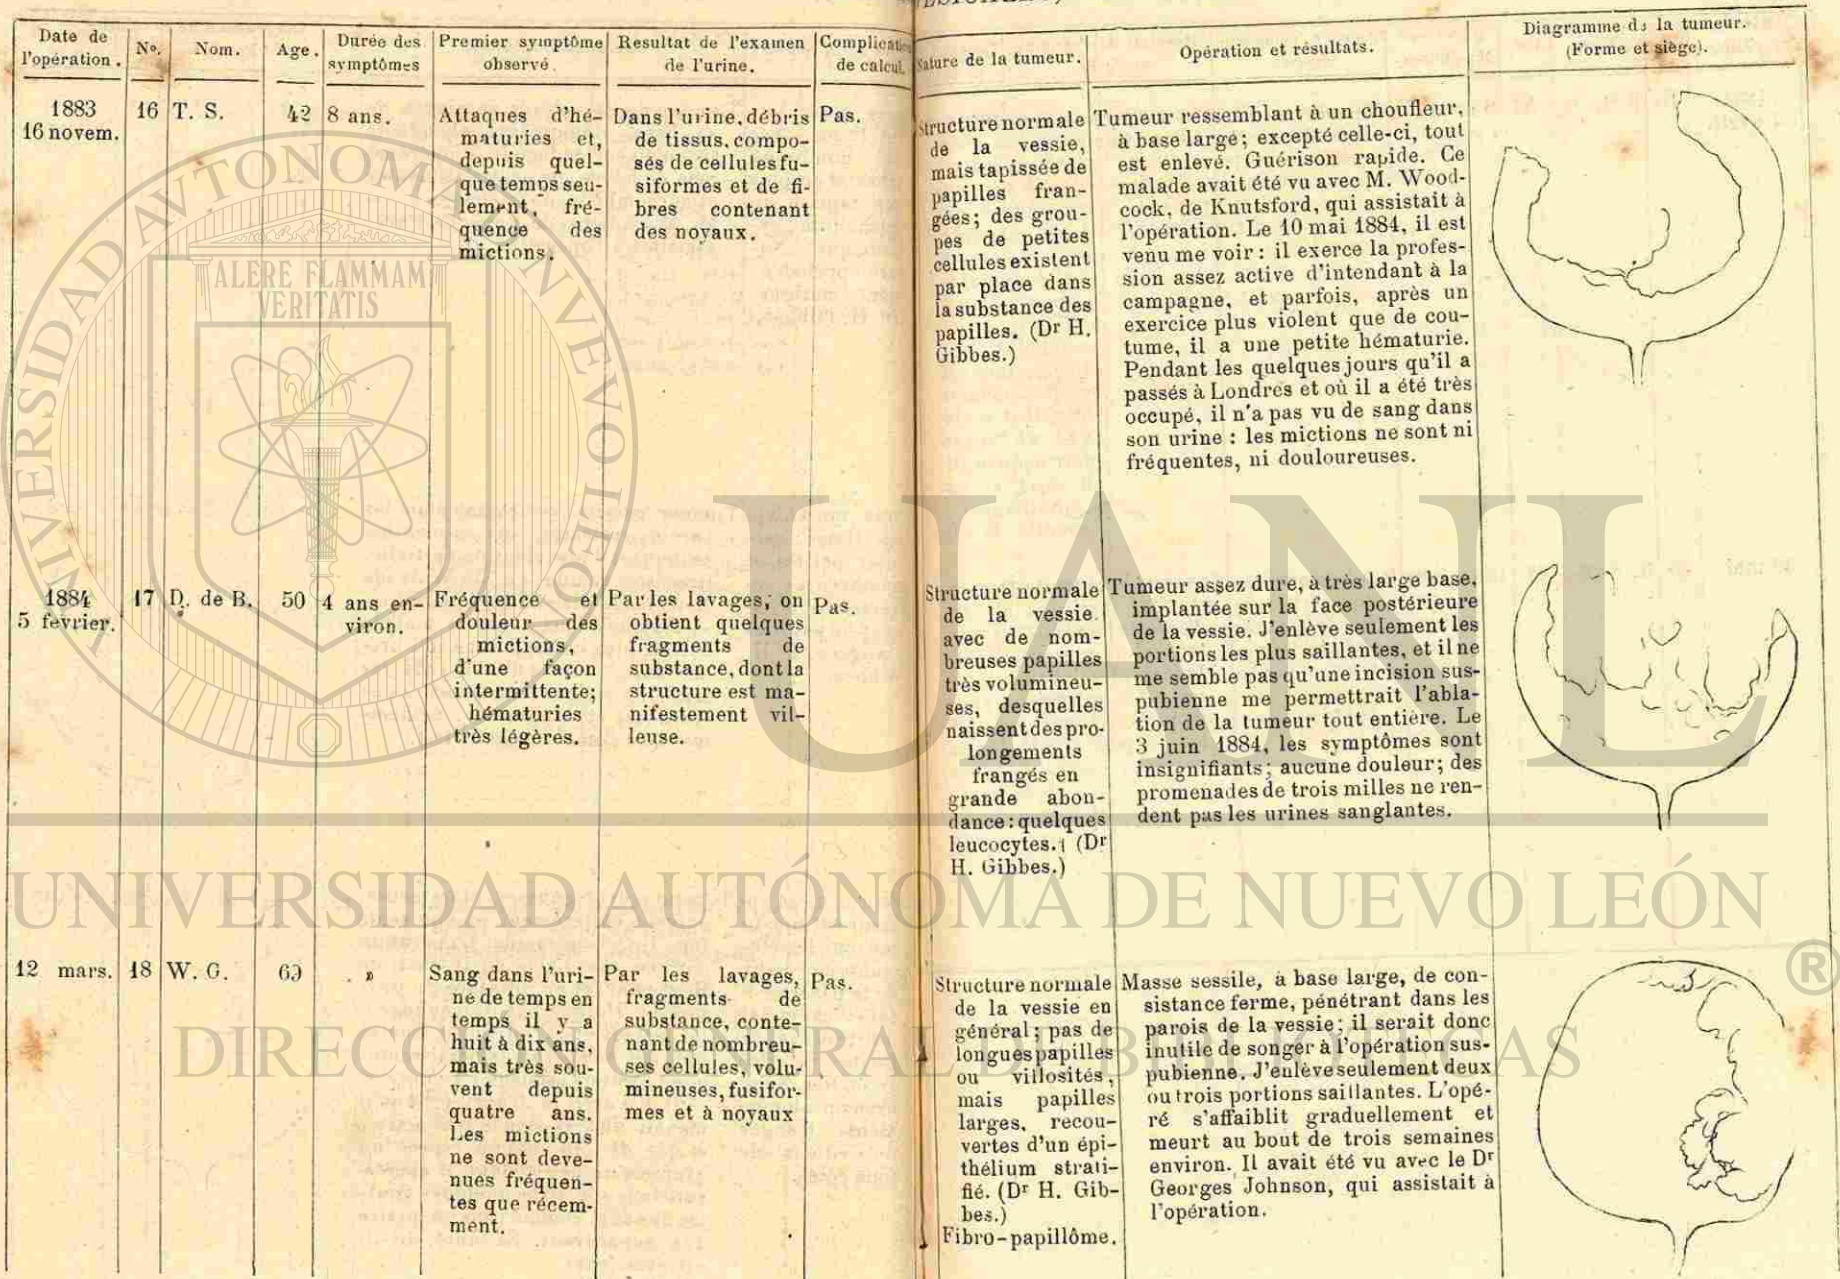 Date de
l'opération.
No.
Nom.
Age.
Durée des
symptômes
Premier symptôme
observé.
Resultat de l'examen
de l'urine.
de calcul.
de la tumeur.
Opération et résultats.
Diagramme de la tumeur.
(Forme et siège).
1883
16 novem.
16
T. S.
42
8 ans.
Attaques d'hé-
maturies et,
depuis quel-
que temps seu-
lement, fré-
quence des
mictions.
Dans l'urine, débris
de tissus, compo-
sés de cellules fu-
siformes et de fi-
bres contenant
des noyaux.
Pas.
Structure normale
de la vessie,
mais tapissée de
papilles fran-
gées; des grou-
pes de petites
cellules existent
par place dans
la substance des
papilles. (Dr H.
Gibbes.)
Tumeur ressemblant à un choufleur,
à base large; excepté celle-ci, tout
est enlevé. Guérison rapide. Ce
malade avait été vu avec M. Wood-
cock, de Knutsford, qui assistait à
l'opération. Le 10 mai 1884, il est
venu me voir : il exerce la profes-
sion assez active d'intendant à la
campagne, et parfois, après un
exercice plus violent que de cou-
tume, il a une petite hématurie.
Pendant les quelques jours qu'il a
passés à Londres et où il a été très
occupé, il n'a pas vu de sang dans
son urine : les mictions ne sont ni
fréquentes, ni douloureuses.
1884
5 février.
17
D. de B.
50
4 ans en-
viron.
Fréquence et
douleur des
mictions,
d'une façon
intermittente;
hématuries
très légères.
Par les lavages, on
obtient quelques
fragments de
substance, dont la
structure est ma-
nifestement vil-
leuse.
Pas.
Structure normale
de la vessie
avec de nom-
breuses papilles
très volumineu-
ses, desquelles
naissent des pro-
longements
frangés en
grande abon-
dance : quelques
leucocytes. (Dr
H. Gibbes.)
Tumeur assez dure, à très large base,
implantée sur la face postérieure
de la vessie. J'enlève seulement les
portions les plus saillantes, et il ne
me semble pas qu'une incision sus-
pubienne me permettrait l'abla-
tion de la tumeur tout entière. Le
3 juin 1884, les symptômes sont
insignifiants; aucune douleur; des
promenades de trois milles ne ren-
dent pas les urines sanglantes.
12 mars.
18
W. G.
»
Sang dans l'uri-
ne de temps en
temps il y a
huit à dix ans,
mais très sou-
vent depuis
quatre ans.
Les mictions
ne sont deve-
nues fréquen-
tes que récem-
ment.
Par les lavages,
fragments de
substance, conte-
nant de nombreu-
ses cellules, volu-
mineuses, fusifor-
mes et à noyaux
Pas.
Structure normale
de la vessie en
général; pas de
longues papilles
ou villosités,
mais papilles
larges, recou-
vertes d'un épi-
thélium strati-
fié. (Dr H. Gib-
bes.)
Fibro-papillôme.
Masse sessile, à base large, de con-
sistance ferme, pénétrant dans les
parois de la vessie; il serait donc
inutile de songer à l'opération sus-
pubienne. J'enlève seulement deux
ou trois portions saillantes. L'opé-
ré s'affaiblit graduellement et
meurt au bout de trois semaines
environ. Il avait été vu avec le Dr
Georges Johnson, qui assistait à
l'opération.
UNIVERSIDAD AVTONOMA DE NVEVO LEON
ALERE FLAMMAM
VERITATIS
UANL
UNIVERSIDAD AUTÓNOMA DE NUEVO LEÓN
®
DIRECCIÓN GENERAL DE BIBLIOTECAS